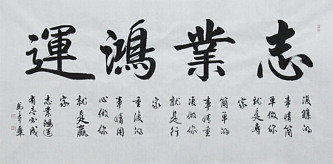 志業鴻運
復雜的
事情簡
單做你
就是專
家
簡單的
事情重
復做你
就是行
家
重復的
事情用
心做你
就是贏
家
志業鴻運